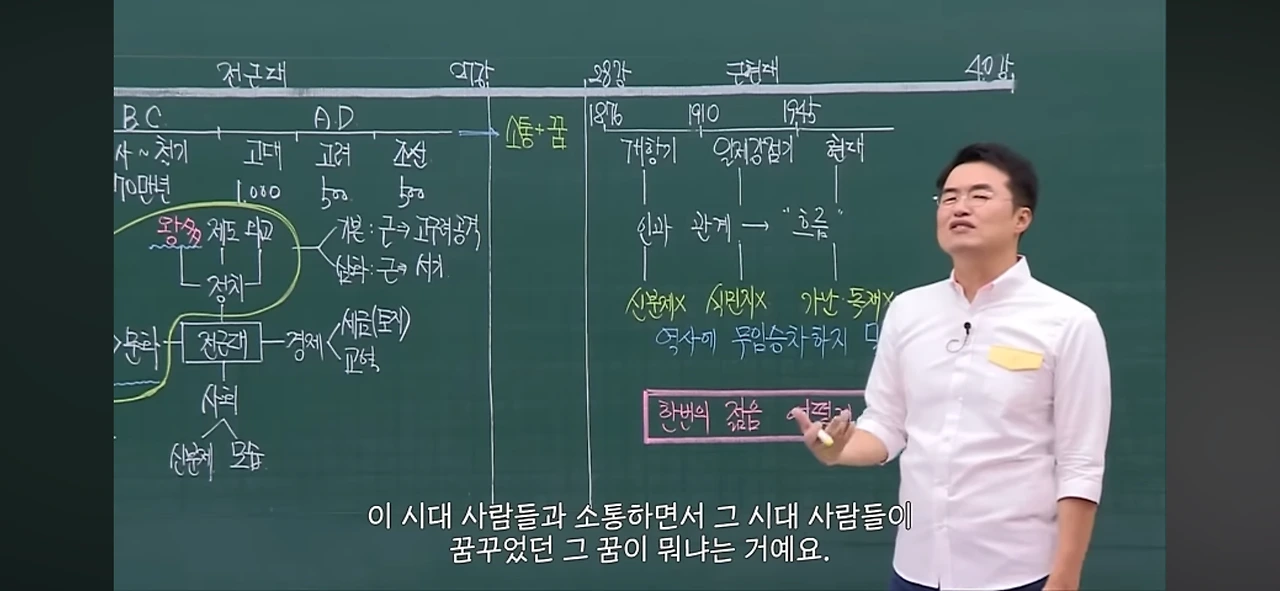 전근대 27강 28강 근현대 40강
B.C. A.D 소통+꿈 1876 1910 1945
사~철기 고대 고려 조선 개항기 일제강점기 현대
70만년 1,000 500 500
왕多 제도 외교 기본 : 근→고구려 공격 인과 관계 → "흐름"
심화 : 근→서기
정치
신분제x 식민지x 가난·독재x
문화 전근대 경제 세금(토지) 역사에 무임승차하지
교역
사회
한번의 젊음
신분제 모습
이 시대 사람들과 소통하면서 그 시대 사람들이
꿈꾸었던 그 꿈이 뭐냐는 거예요.